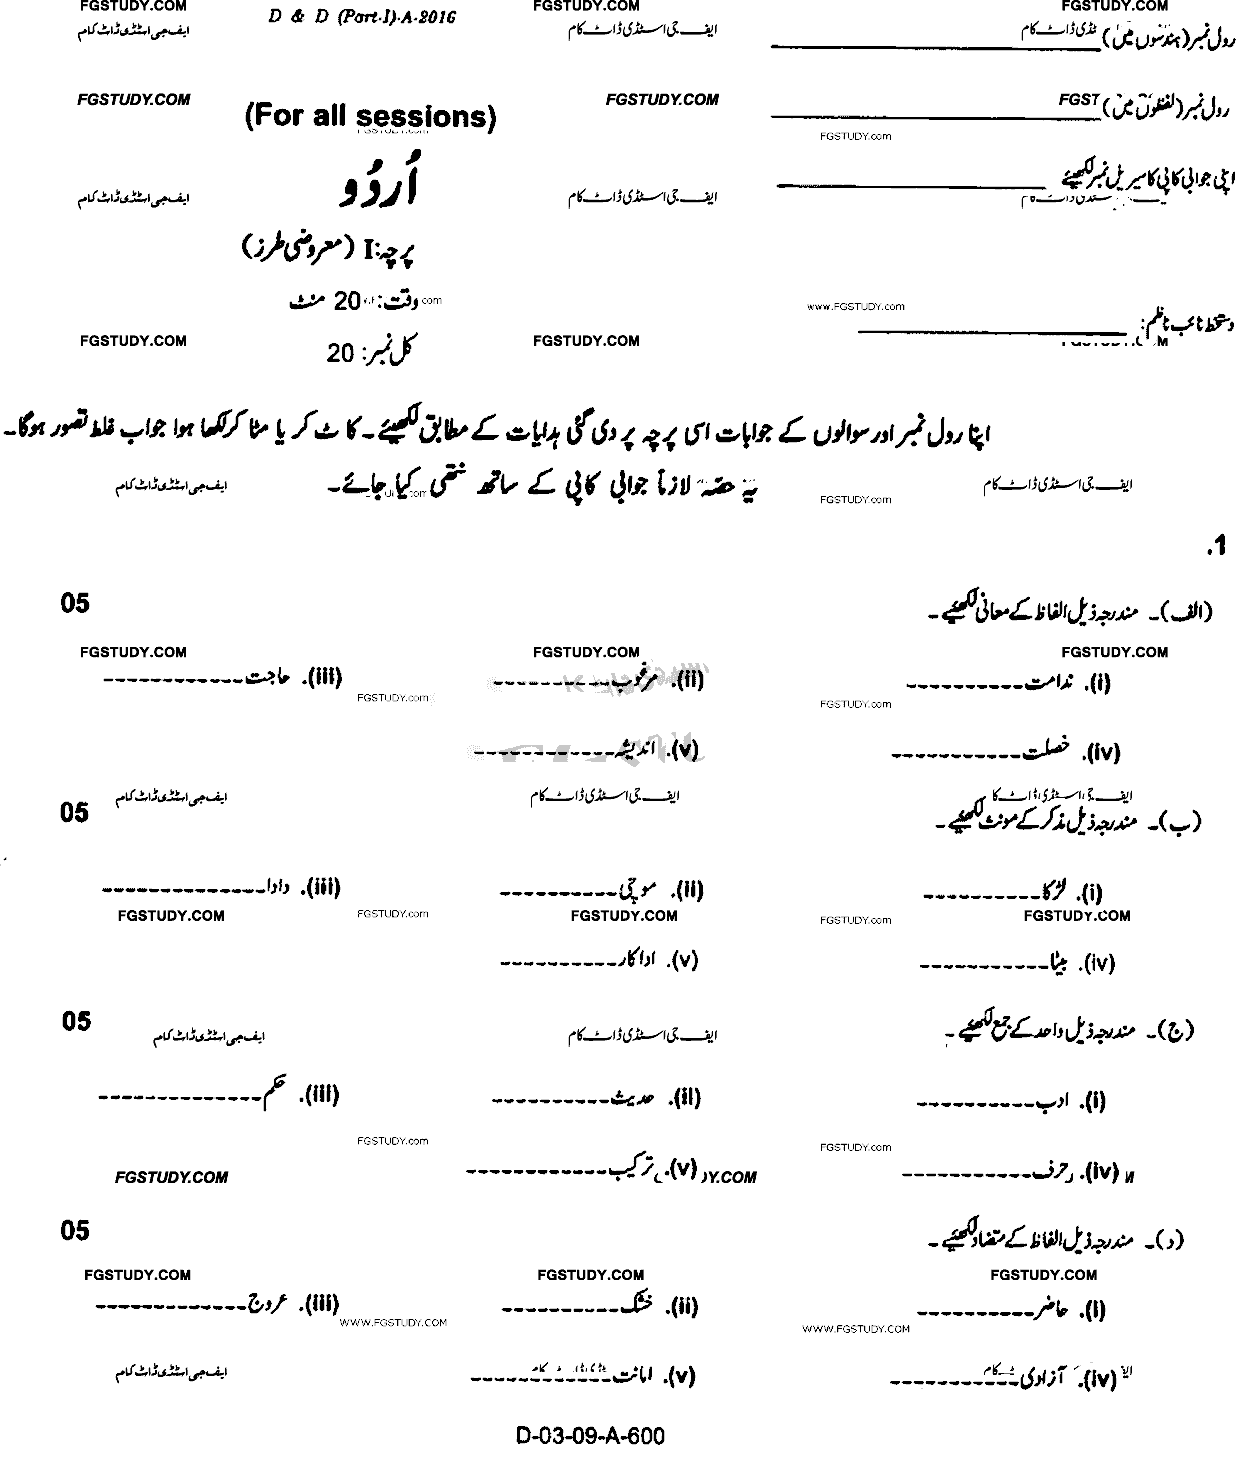 FGSTUDY.COM FGSTUDY.COM FGSTUDY.COM
D & D (Part-I)-A-2016
رول نمبر (ہندسوں میں) ایف جی اسٹڈی ڈاٹ کام ایف جی اسٹڈی ڈاٹ کام
FGSTUDY.COM FGSTUDY.COM FGST
(For all sessions)
رول نمبر (لفظوں میں)
FGSTUDY.com
اُردُو
اپنی جوابی کاپی کا سیریل نمبر لکھیئے
ایف جی اسٹڈی ڈاٹ کام ایف جی اسٹڈی ڈاٹ کام
پرچہ: I (معروضی طرز)
وقت: 20 منٹ
www.FGSTUDY.com
دستخط نائب ناظم:
FGSTUDY.COM FGSTUDY.COM
کل نمبر: 20
اپنا رول نمبر اور سوالوں کے جوابات اسی پرچہ پر دی گئی ہدایات کے مطابق لکھیئے۔ کاٹ کر یا مٹا کر لکھا ہوا جواب غلط تصور ہوگا۔
یہ حصّہ لازماً جوابی کاپی کے ساتھ نتھی کیا جائے۔
ایف جی اسٹڈی ڈاٹ کام FGSTUDY.com ایف جی اسٹڈی ڈاٹ کام
1.
(الف)۔ مندرجہ ذیل الفاظ کے معانی لکھیئے۔ 05
FGSTUDY.COM FGSTUDY.COM FGSTUDY.COM
(i). ندامت------------ (ii). مرغوب------------ (iii). حاجت------------
FGSTUDY.com FGSTUDY.com
(iv). خصلت------------ (v). اندیشہ------------
ایف جی اسٹڈی ڈاٹ کام ایف جی اسٹڈی ڈاٹ کام
(ب)۔ مندرجہ ذیل مذکر کے مونث لکھیئے۔ 05
(i). لڑکا------------ (ii). موچی------------ (iii). دادا--------------
FGSTUDY.COM FGSTUDY.com FGSTUDY.COM FGSTUDY.com FGSTUDY.COM
(iv). بیٹا------------ (v). اداکار------------
(ج)۔ مندرجہ ذیل واحد کے جمع لکھیئے۔ 05
ایف جی اسٹڈی ڈاٹ کام ایف جی اسٹڈی ڈاٹ کام
(i). ادب------------ (ii). حدیث------------ (iii). حکم--------------
FGSTUDY.com FGSTUDY.com
(iv). حرف------------ (v). ترکیب------------
FGSTUDY.COM Y.COM
(د)۔ مندرجہ ذیل الفاظ کے متضاد لکھیئے۔ 05
FGSTUDY.COM FGSTUDY.COM FGSTUDY.COM
(i). حاضر------------ (ii). خشک------------ (iii). عروج-------------
WWW.FGSTUDY.COM WWW.FGSTUDY.COM
(iv). آزادی------------ (v). امانت------------
ایف جی اسٹڈی ڈاٹ کام
D-03-09-A-600